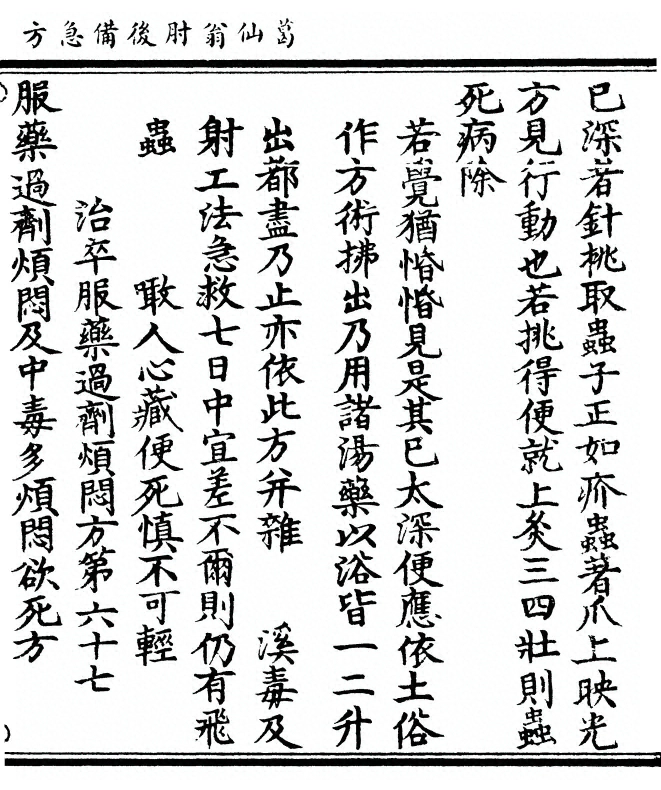 葛仙翁肘後備急方
已深者針桃取蟲子正如疥蟲著爪上映光
方見行動也若挑得便就上灸三四壯則蟲
死病除
若覺猶惛惛見是其已太深便應依土俗
作方術拂出乃用諸湯藥以浴皆一二升
出都盡乃止亦依此方并雜 溪毒及
射工法急救七日中宜差不爾則仍有飛
蟲 噉人心藏便死慎不可輕
治卒服藥過劑煩悶方第六十七
服藥過劑煩悶及中毒多煩悶欲死方